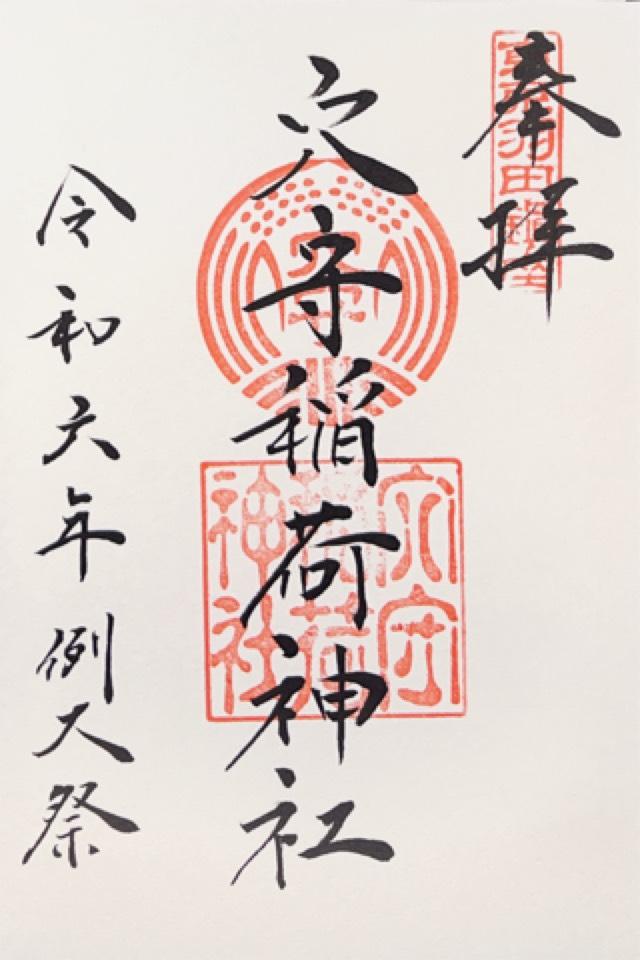 奉拝
東京羽田鎮座
穴守稲荷神社
穴守稲荷神社
令和六年例大祭